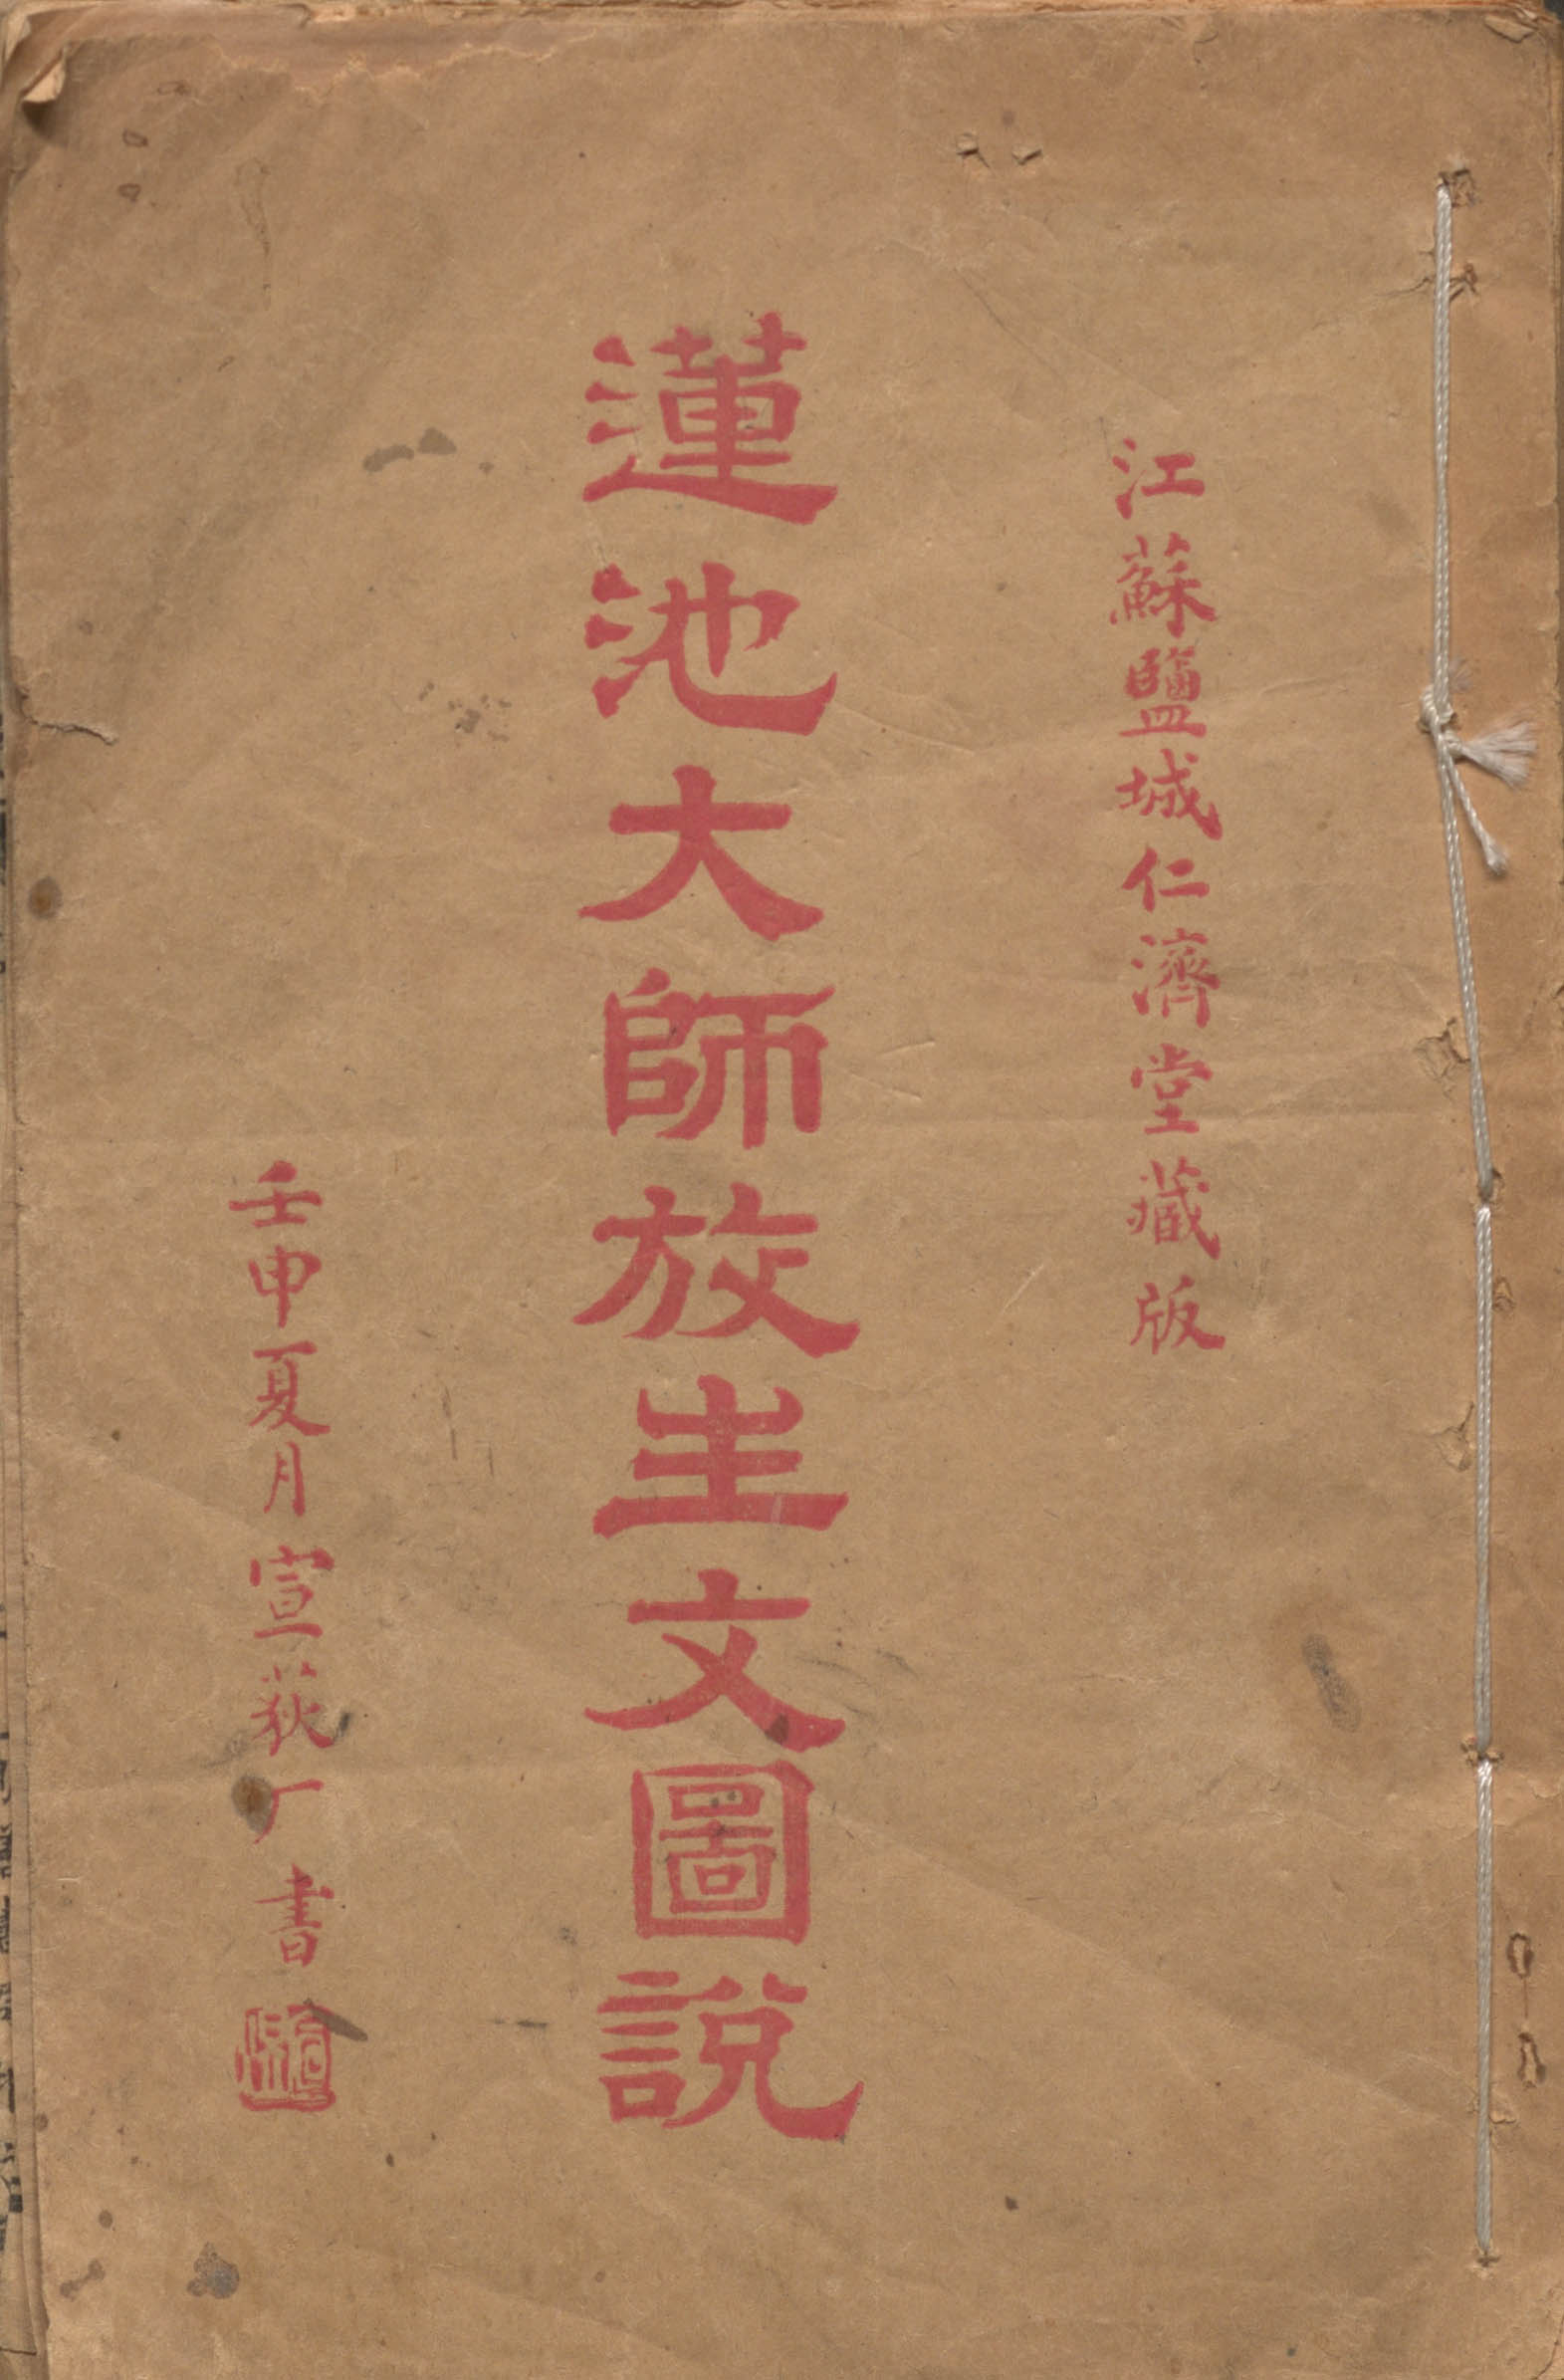 江蘇鹽城仁濟堂藏版
蓮池大師放生文圖說
壬申夏月宣荻厂書